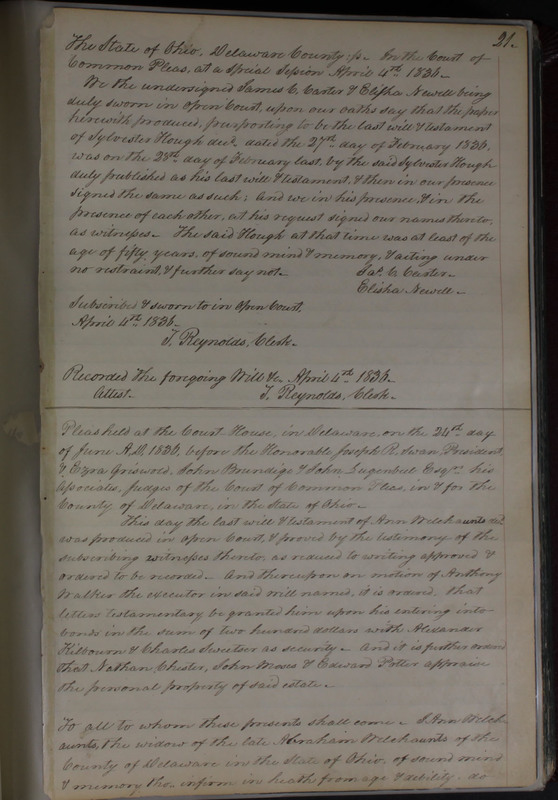 21.
The State of Ohio, Delaware County ss. In the Court of
Common Pleas, at a Special Session April 4th 1836.
We the undersigned James C. Carter & Elisha Newell being
duly sworn in open Court, upon our oaths say that the paper
herewith produced, purporting to be the last will & testament
of Sylvester Hough decd. dated the 27th day of February 1836,
was on the 28th day of February last, by the said Sylvester Hough
duly published as his last will & testament, & then in our presence
signed the same as such; And we in his presence, & in the
presence of each other, at his request signed our names thereto,
as witnesses. The said Hough at that time was at least of the
age of fifty years, of sound mind & memory, & acting under
no restraint, & further say not. Jas. C. Carter
Elisha Newell
Subscribed & sworn to in open Court,
April 4th 1836.
T. Reynolds, Clerk.
Recorded the foregoing Will &c. April 4th 1836.
Attest. T. Reynolds, Clerk.
Pleas held at the Court House, in Delaware, on the 24th day
of June A.D. 1836, before the Honorable Joseph R. Swan, President
& Ezra Griswold, John Brundige & John Lugenbeel Esqrs. his
Associates, Judges of the Court of Common Pleas, in & for the
County of Delaware, in the State of Ohio.
This day the last will & testament of Ann Welchaunts decd.
was produced in open Court, & proved by the testimony of the
subscribing witnesses thereto, as reduced to writing approved &
ordered to be recorded. And thereupon on motion of Anthony
Walker the executor in said will named, it is ordered, that
letters testamentary be granted him upon his entering into
bonds in the sum of two hundred dollars with Alexander
Kilbourn & Charles Sweetser as security. And it is further ordered
that Nathan Chester, John Moses & Edward Potter appraise
the personal property of said estate.
To all to whom these presents shall come. I Ann Welch-
aunts, the widow of the late Abraham Welchaunts of the
County of Delaware in the State of Ohio, of sound mind
& memory tho. infirm in heath from age & debility, do